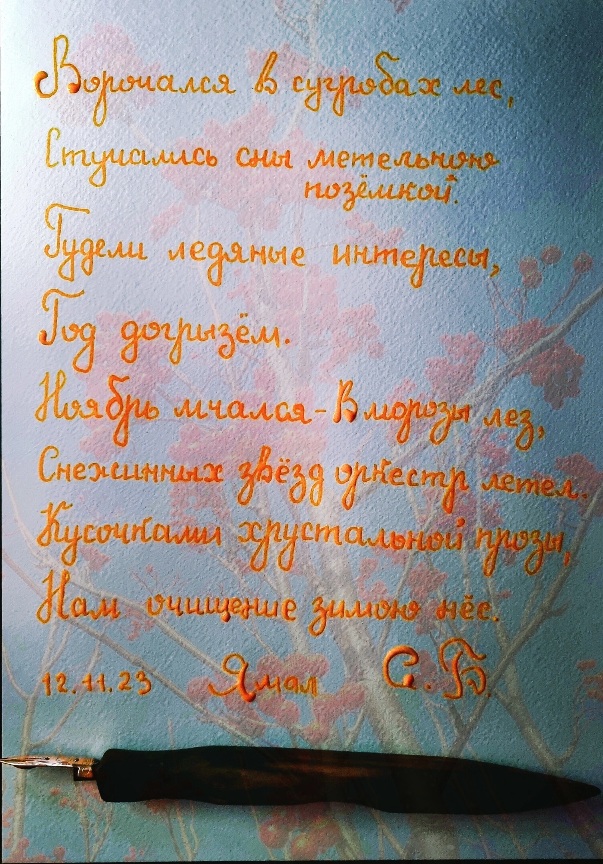 Ворочался в сугробах лес,
Стучались сны метельною
позёмкой.
Гудели ледяные интересы,
Год догрызём.
Ноябрь мчался - В морозы лез,
Снежинных звёзд оркестр летел..
Кусочками хрустальной прозы,
Нам очищение зимою нёс.
12.11.23 Ямал С.Б.